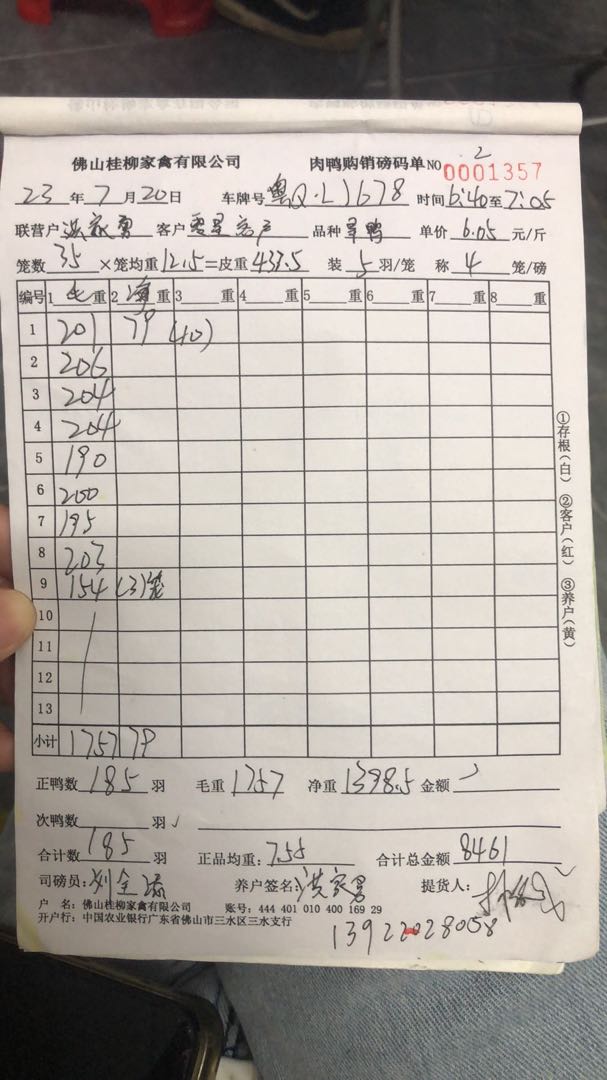 佛山桂柳家禽有限公司 肉鸭购销磅码单 NO 2 0001357
23 年 7 月 20 日 车牌号 粤Q·L1678 时间 6:40 至 7:05
联营户 洪家勇 客户 零星客户 品种 旱鸭 单价 6.05 元/斤
笼数 35 ×笼均重 12.5 =皮重 437.5 装 5 羽/笼 称 4 笼/磅
编号 1 毛 重 2 净 重 3 重 4 重 5 重 6 重 7 重 8 重
1 201 79 (40)
2 206
3 204
4 204
5 190
6 200
7 195
8 203
9 154 (3)笼
10
11
12
13
小计 1757 79
正鸭数 185 羽 毛重 1757 净重 1398.5 金额
次鸭数 羽
合计数 185 羽 正品均重: 7.55 合计总金额 8461
司磅员: 养户签名: 洪家勇 提货人:
户 名: 佛山桂柳家禽有限公司 账号: 444 401 010 400 169 29
开户行: 中国农业银行广东省佛山市三水区三水支行
13922028058
①存根(白) ②客户(红) ③养户(黄)